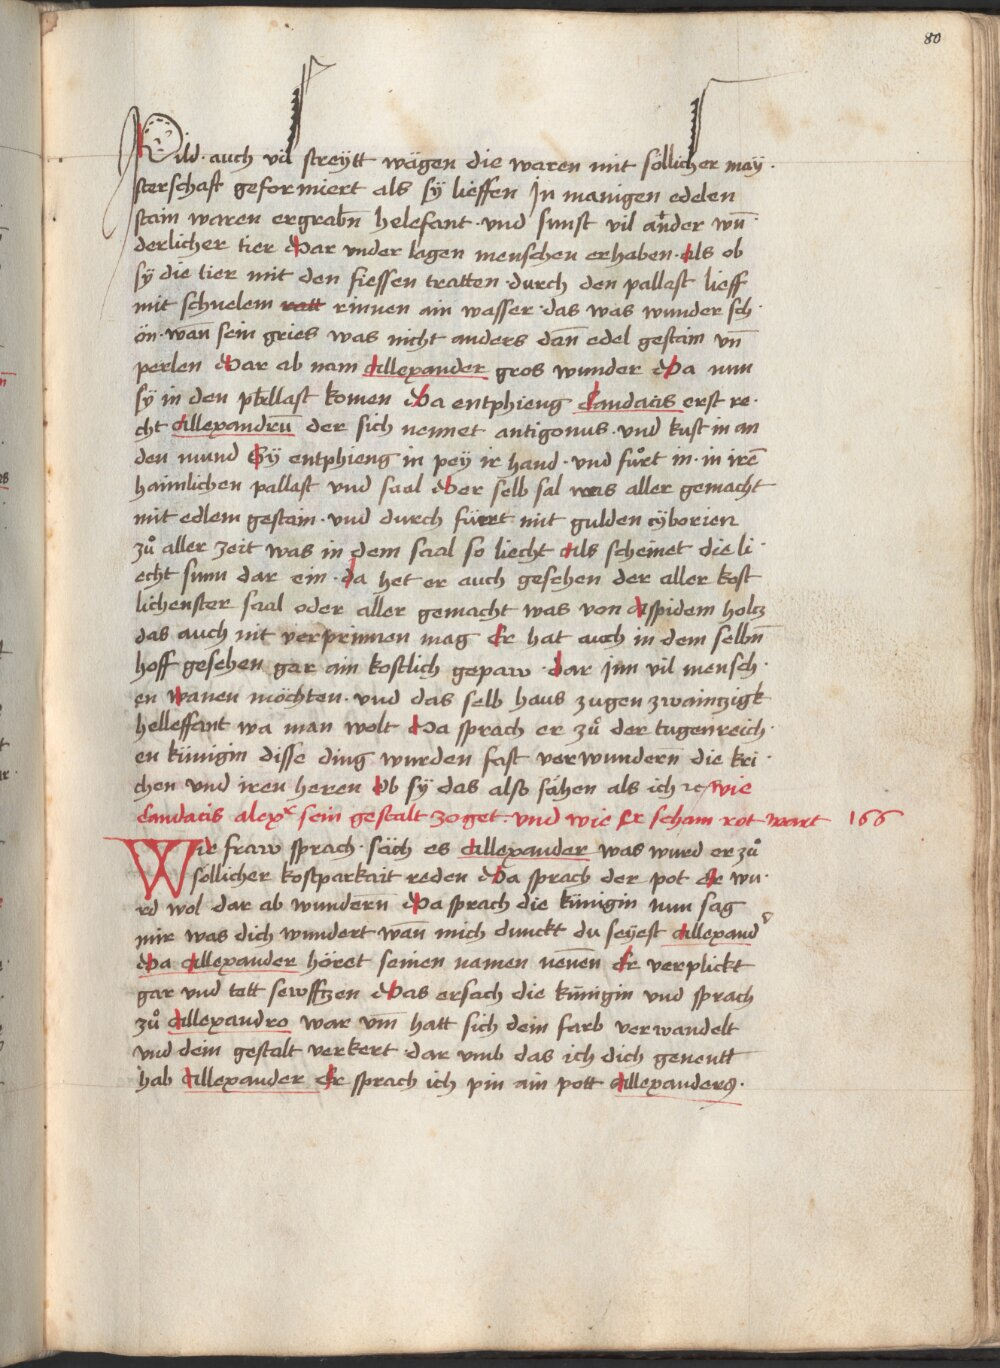 80
Pild · auch vil streÿtt wägen die waren mit söllicher maÿ ·
sterschaft geformiert als sÿ lieffen Jn manigen edelen
stain waren ergrabñ helefant · vnd sunst vil ander wū ·
derlicher tier Dar vnder lagen menschen erhaben · Als ob
sÿ die tier mit den fiessen tratten · durch den pallast lieff
mit schnelem ratt rinnen ain wasser · das was wunder sch ·
ön · wan̄ sein gries was nicht anders dan̄ edel gestain vn̄
perlen Dar ab nam Allexander gros wunder Da nun
sÿ in den pallast komen Da entphieng Candacis erst re ·
cht Allexandrum̄ der sich nennet antigonus · vnd kust in an
den mund Sÿ entphieng in peÿ ir hand · vnd fůrt in · in irē
haimlichen pallast vnd saal Der selb sal was aller gemacht
mit edlem gestain · vnd durch fürett mit gulden cÿborien
zů aller zeit was in dem saal so liecht Als scheinet die li ·
echt sunn dar ein · da het er auch gesehen der aller kost
lichenster saal oder aller gemacht was von Aspidem holtz
das auch nit verprinnen mag Er hat auch in dem selbn̄
hoff gesehen gar ain kostlich gepaw · dar jnn vil mensch ·
en wanen möchten · vnd das selb haus zugen zwaintzigk
helleffant wa man wolt Da sprach er zů der tugenreich ·
en künigin disse ding wurden fast verwundern̄ die kri ·
chen vnd iren heren Ob sÿ das also sähen als ich ꝛc wie
Candacis alexr sein gestalt zoget · vnd wie Er scham rot wart 166
Wie fraw sprach · säch es Allexander was wurd er zů
söllicher kostparkait reden Da sprach der pot Er wu ·
rd wol dar ab wundern̄ Da sprach die künigin nun sag
mir was dich wundert wan̄ mich dunckt du seÿest Allexand'
Da Allexander höret seinen namen nenen̄ Er verplickt
gar vnd tett sewfftzen Das ersach die künigin vnd sprach
zů Allexandro war vm̄ hatt sich dein farb verwandelt
vnd dein gestalt verkert dar vmb das ich dich genentt
hab Allexander Er sprach ich pin ain pott Allexanders ·